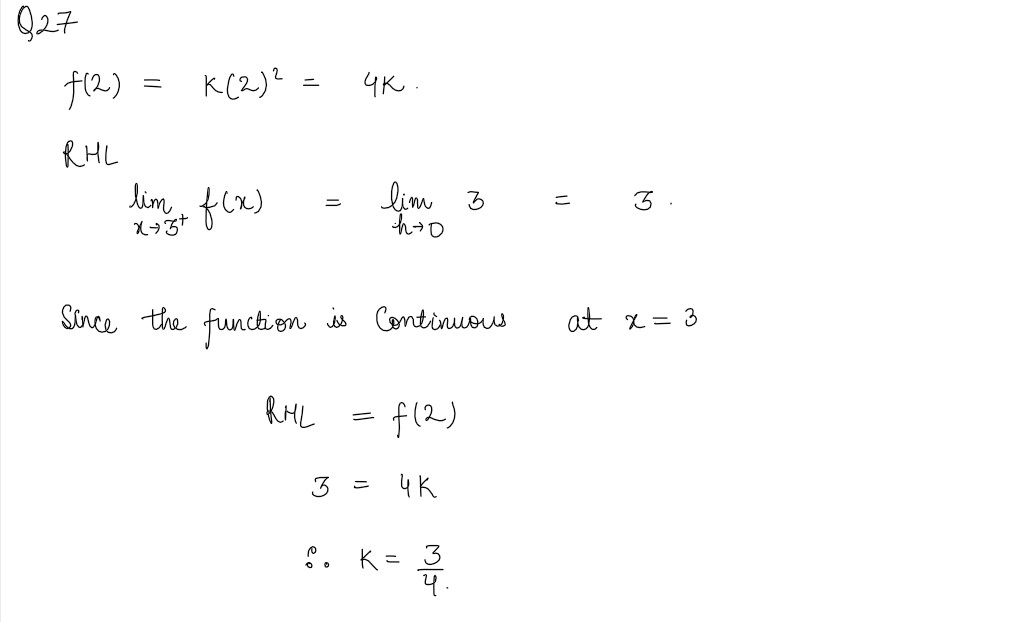 Q27
f(2) = K(2)² = 4K.
RHL
lim x→3⁺ f(x) = lim h→0 3 = 3.
Since the function is Continuous at x = 3
RHL = f(2)
3 = 4K
∴ K = 3/4.